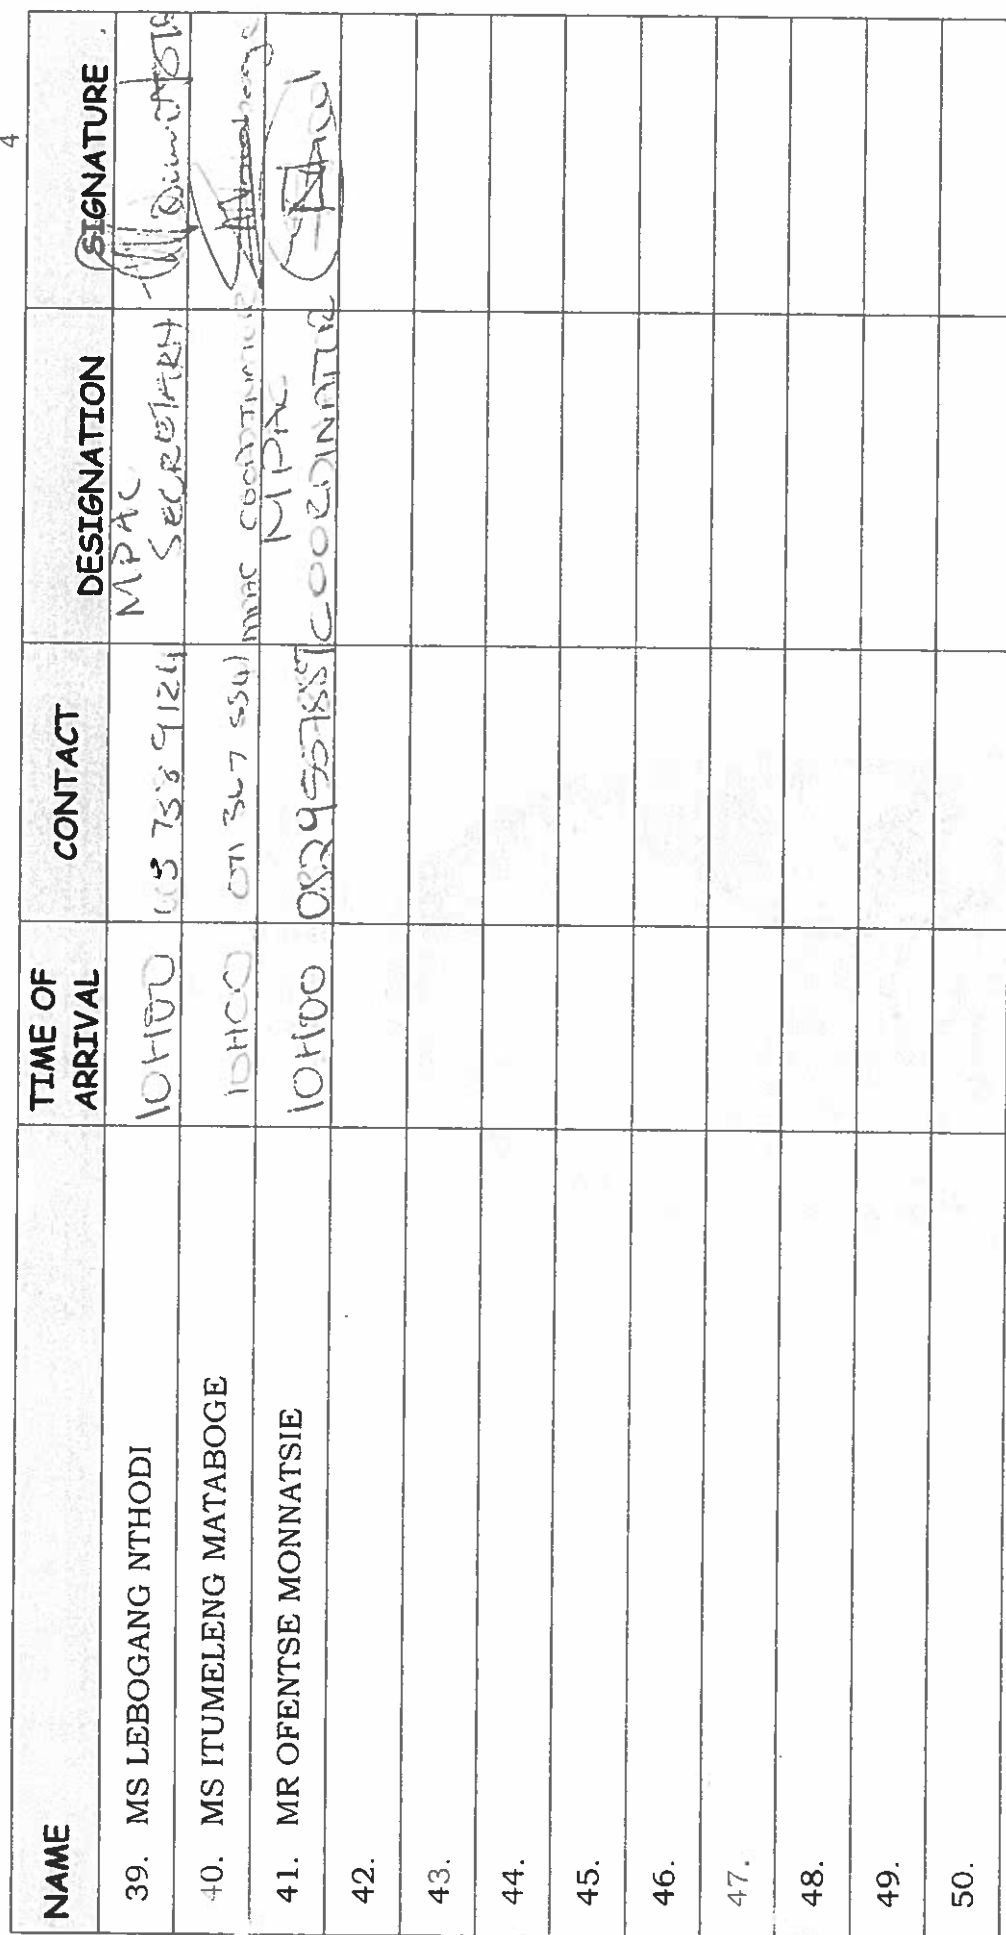 4
NAME TIME OF ARRIVAL CONTACT DESIGNATION SIGNATURE
39. MS LEBOGANG NTHODI 10H00 738 9124 MPAC SECRETARY
40. MS ITUMELENG MATABOGE 10H00 071 367 5541 MPAC COORDINATOR
41. MR OFENTSE MONNATSIE 10H00 MPAC COORDINATOR
42.
43.
44.
45.
46.
47.
48.
49.
50.